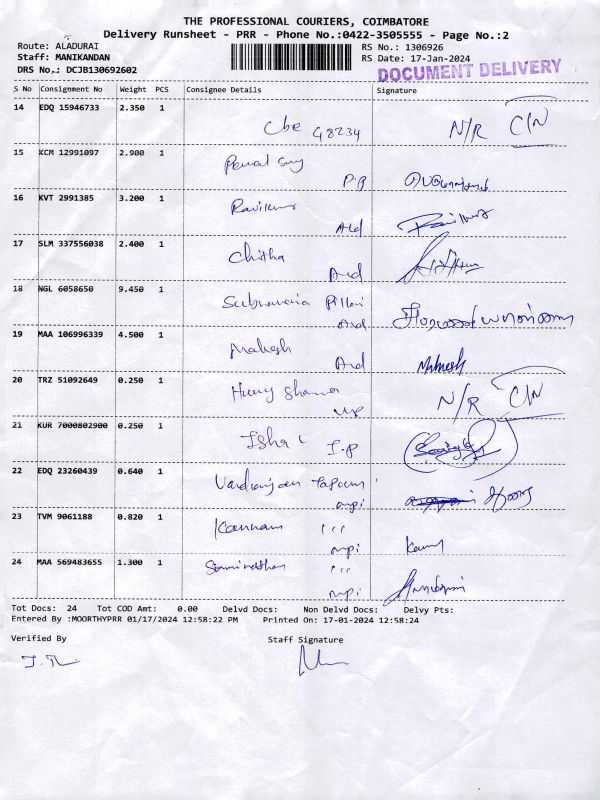 THE PROFESSIONAL COURIERS, COIMBATORE
Delivery Runsheet - PRR - Phone No.:0422-3505555 - Page No.:2
Route: ALADURAI RS No.: 1306926
Staff: MANIKANDAN RS Date: 17-Jan-2024
DRS No.: DCJB130692602 DOCUMENT DELIVERY
S No Consignment No Weight PCS Consignee Details Signature
14 EDQ 15946733 2.350 1
Cbe 48234 N/R C/N
15 KCM 12991097 2.900 1
P.P
16 KVT 2991385 3.200 1
Ravikumar Ald
17 SLM 337556038 2.400 1
Chitha Ald
18 NGL 6058650 9.450 1
Pillai
Ald
19 MAA 106996339 4.500 1
Mahesh Ald Mahesh
20 TRZ 51092649 0.250 1
Sharma N/R C/N
21 KUR 7000802900 0.250 1
I.P
22 EDQ 23260439 0.640 1
mpi
23 TVM 9061188 0.820 1
Kannan
mpi
24 MAA 569483655 1.300 1
mpi
Tot Docs: 24 Tot COD Amt: 0.00 Delvd Docs: Non Delvd Docs: Delvy Pts:
Entered By :MOORTHYPRR 01/17/2024 12:58:22 PM Printed On: 17-01-2024 12:58:24
Verified By Staff Signature